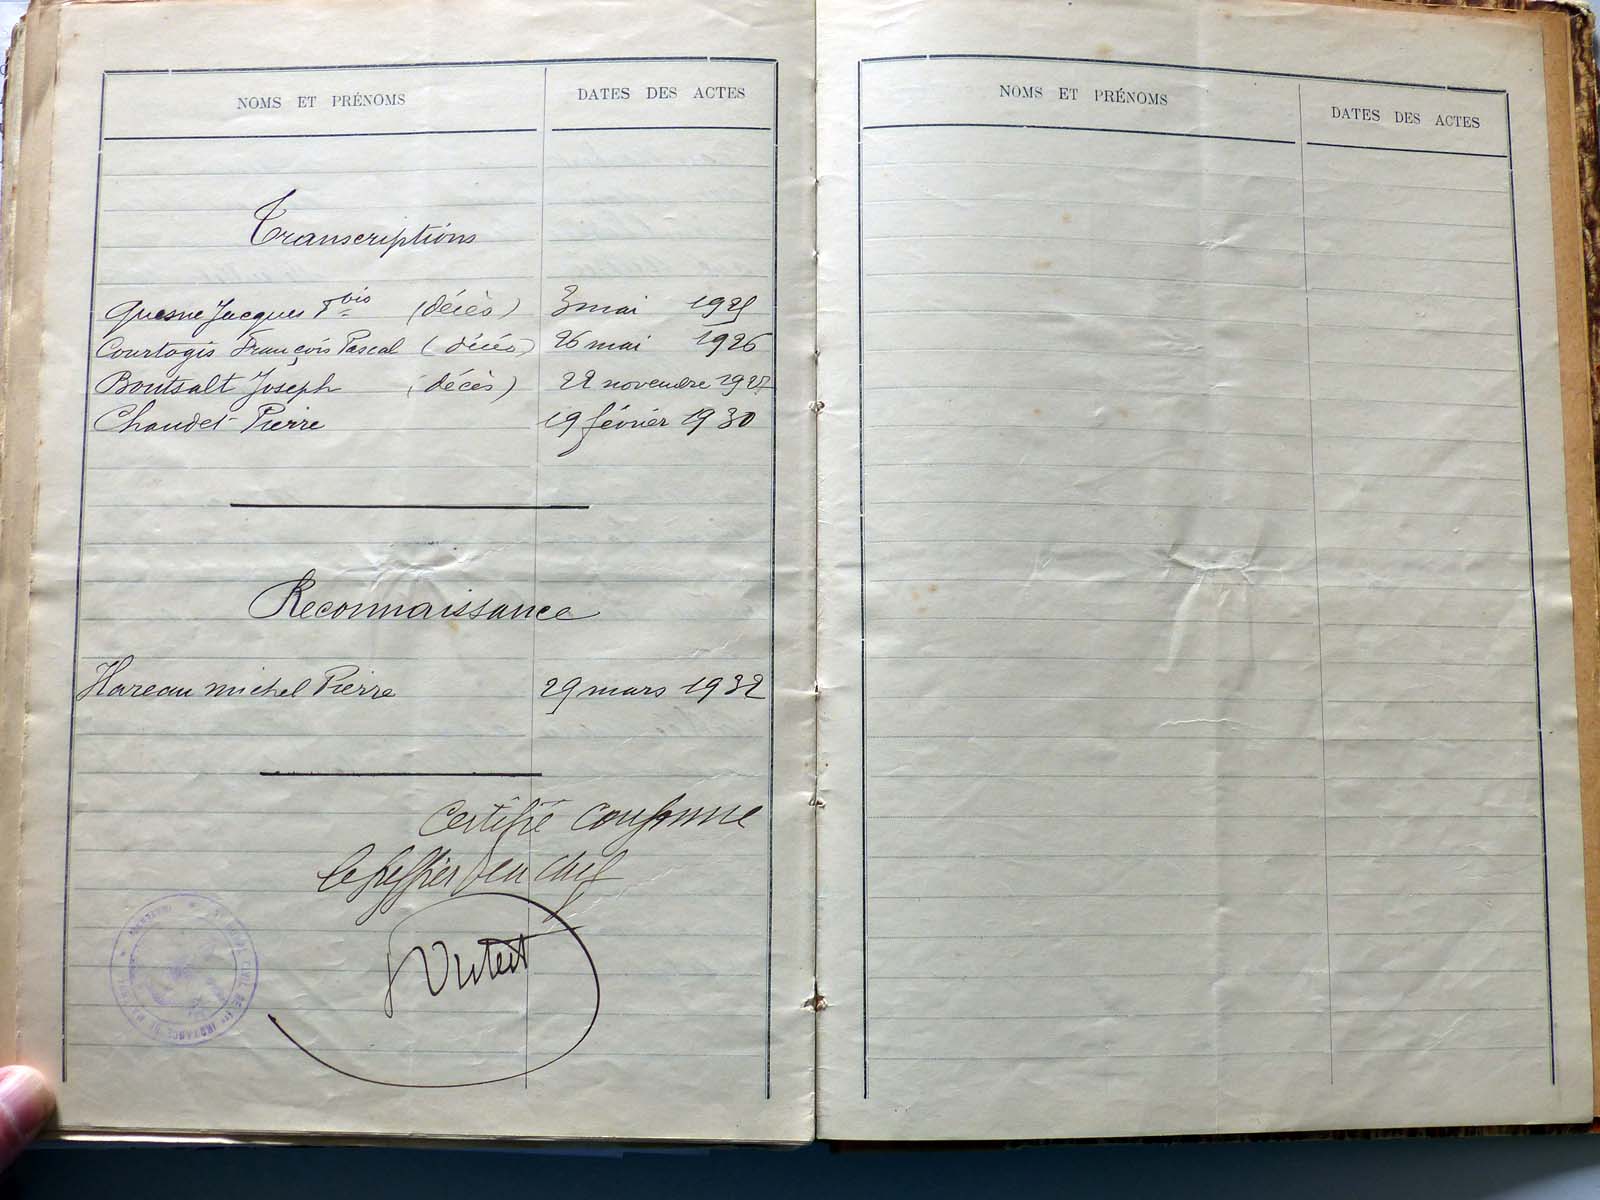 NOMS ET PRÉNOMS DATES DES ACTES
Transcriptions
Quesne Jacques Fbis (décès) 3 mai 1925
Courtogis François Pascal (décès) 26 mai 1926
Boutsalt Joseph (décès) 22 novembre 1927
Chaudet Pierre 19 février 1930
Reconnaissance
Hareau michel Pierre 29 mars 1932
Certifié conforme
le greffier en chef
CIVIL DE 1re INSTANCE DE
NOMS ET PRÉNOMS DATES DES ACTES